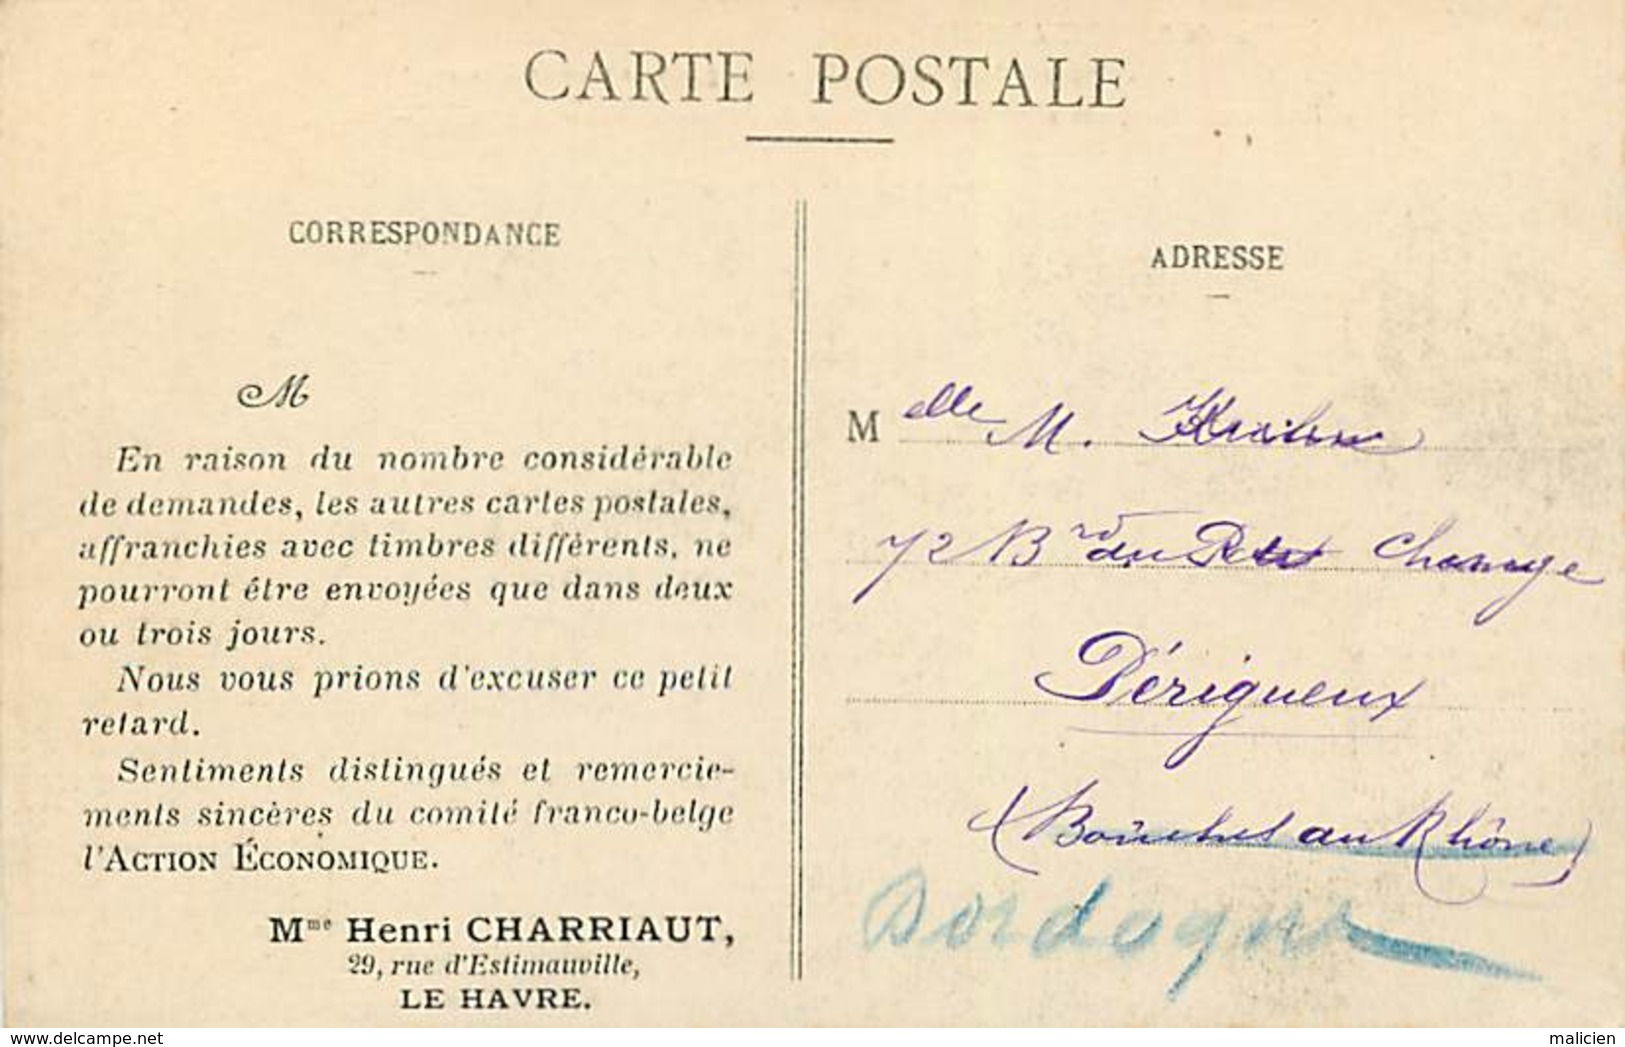 CARTE POSTALE
CORRESPONDANCE
M
En raison du nombre considérable
de demandes, les autres cartes postales,
affranchies avec timbres différents, ne
pourront être envoyées que dans deux
ou trois jours.
Nous vous prions d'excuser ce petit
retard.
Sentiments distingués et remercie-
ments sincères du comité franco-belge
l'ACTION ÉCONOMIQUE.
Mme Henri CHARRIAUT,
29, rue d'Estimauville,
LE HAVRE.
ADRESSE
Melle M.
72 Brd du Petit Change
Périgueux
(Bouches au Rhône)
Dordogne
www.delcampe.net
malicien